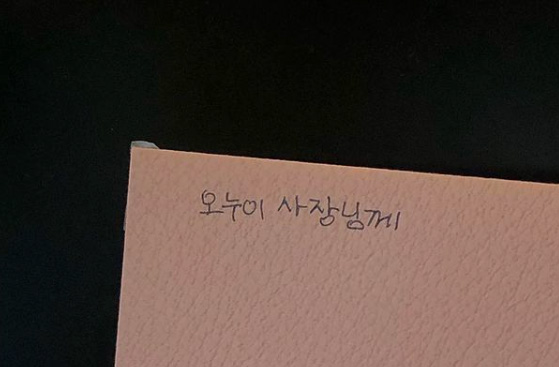 오누이 사장님께